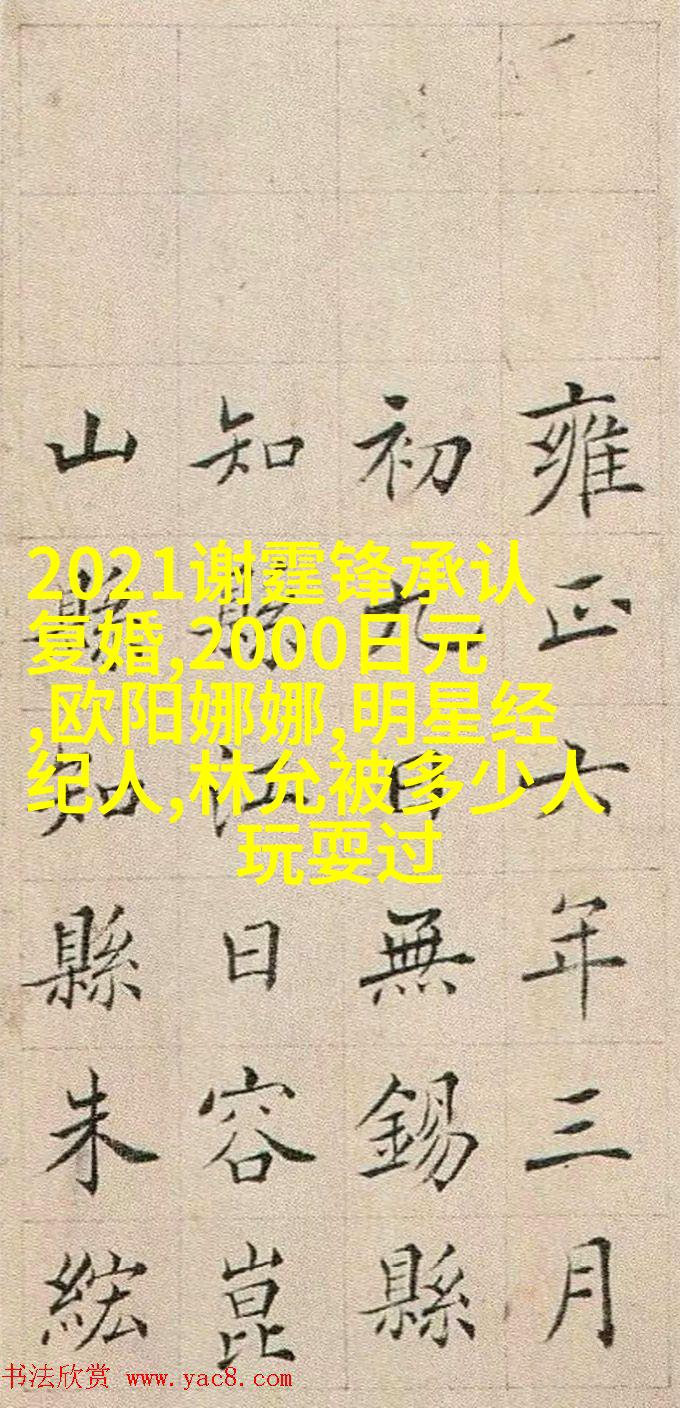 雍正六年三月
初九日無錫縣
知縣江日容崑
山縣知縣朱綋
2021谢霆锋承认
复婚,2000日元
,欧阳娜娜,明星经
纪人,林允被多少人
玩耍过
书法欣赏 www.yac8.com